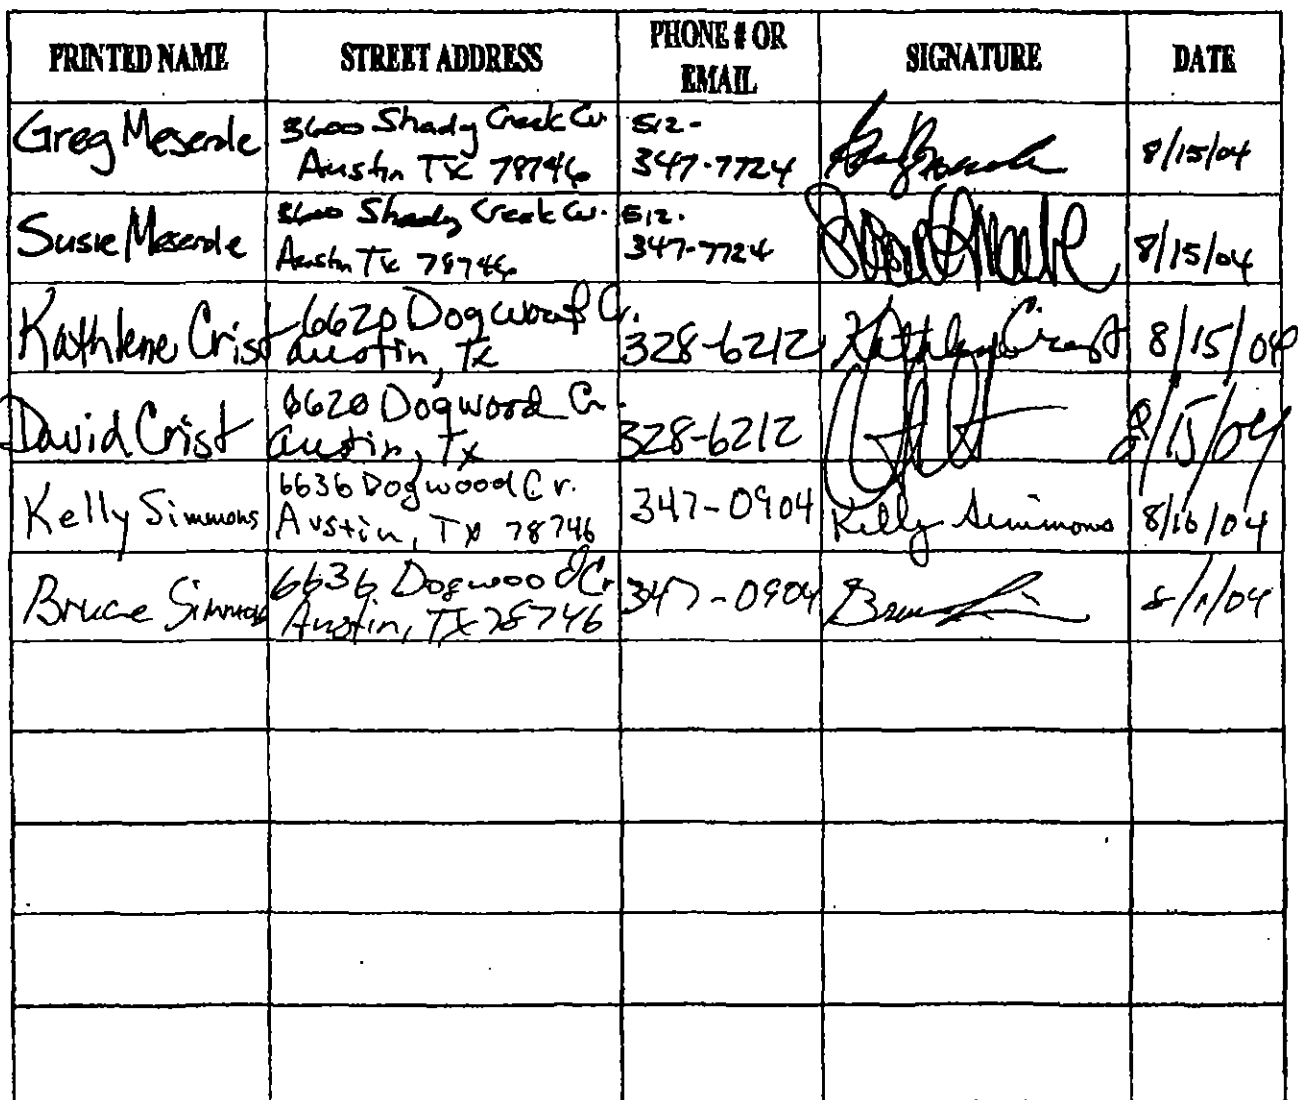 PRINTED NAME STREET ADDRESS PHONE # OR EMAIL SIGNATURE DATE
Greg Meserole 3600 Shady Creek Cv. 512-
Austin TX 78746 347-7724 8/15/04
Susie Meserole 3600 Shady Creek Cv. 512-
Austin TX 78746 347-7724 8/15/04
Kathlene Crist 6620 Dogwood Cr.
Austin, TX 328-6212 Kathlene Crist 8/15/04
David Crist 6620 Dogwood Cr.
Austin, TX 328-6212 8/15/04
Kelly Simmons 6636 Dogwood Cr.
Austin, TX 78746 347-0904 Kelly Simmons 8/16/04
Bruce Simmons 6636 Dogwood Cr
Austin, TX 78746 347-0904